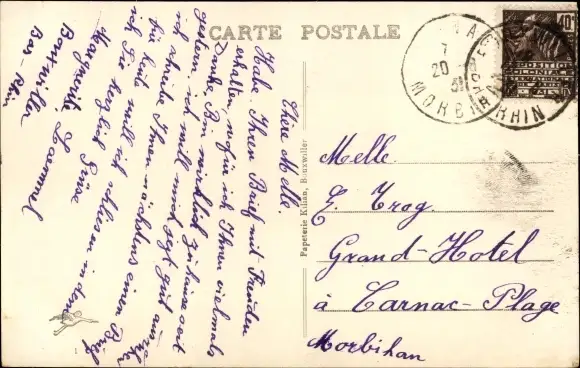 CARTE POSTALE
Chère Melle.
Habe Ihren Brief mit Freuden
erhalten, wofür ich Ihnen vielmals
Danke. Bin wirklich zu hause seit
gestern. ich will
ich schreibe Ihnen nächstens einen Brief
für heute will ich schliesen indem
ich Sie herzlich Grüse
Marguerite Lammel
Bouxwiller
Bas-Rhin
Papeterie Kilian, Bouxwiller
7
20
31
MORBIHAN
RHIN
40
Melle.
E. Trog.
Grand-Hotel
à Carnac-Plage
Morbihan